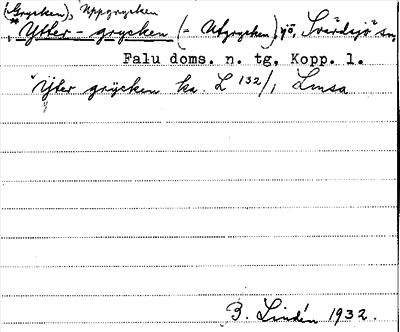 (Grycken), Uppgrycken
Ytter-grycken (= Utgrycken), sjö, Svärdsjö sn,
Falu doms. n. tg, Kopp. l.
Ÿter grÿcken ka. L 132/1 Lmsa
B. Lindén 1932.